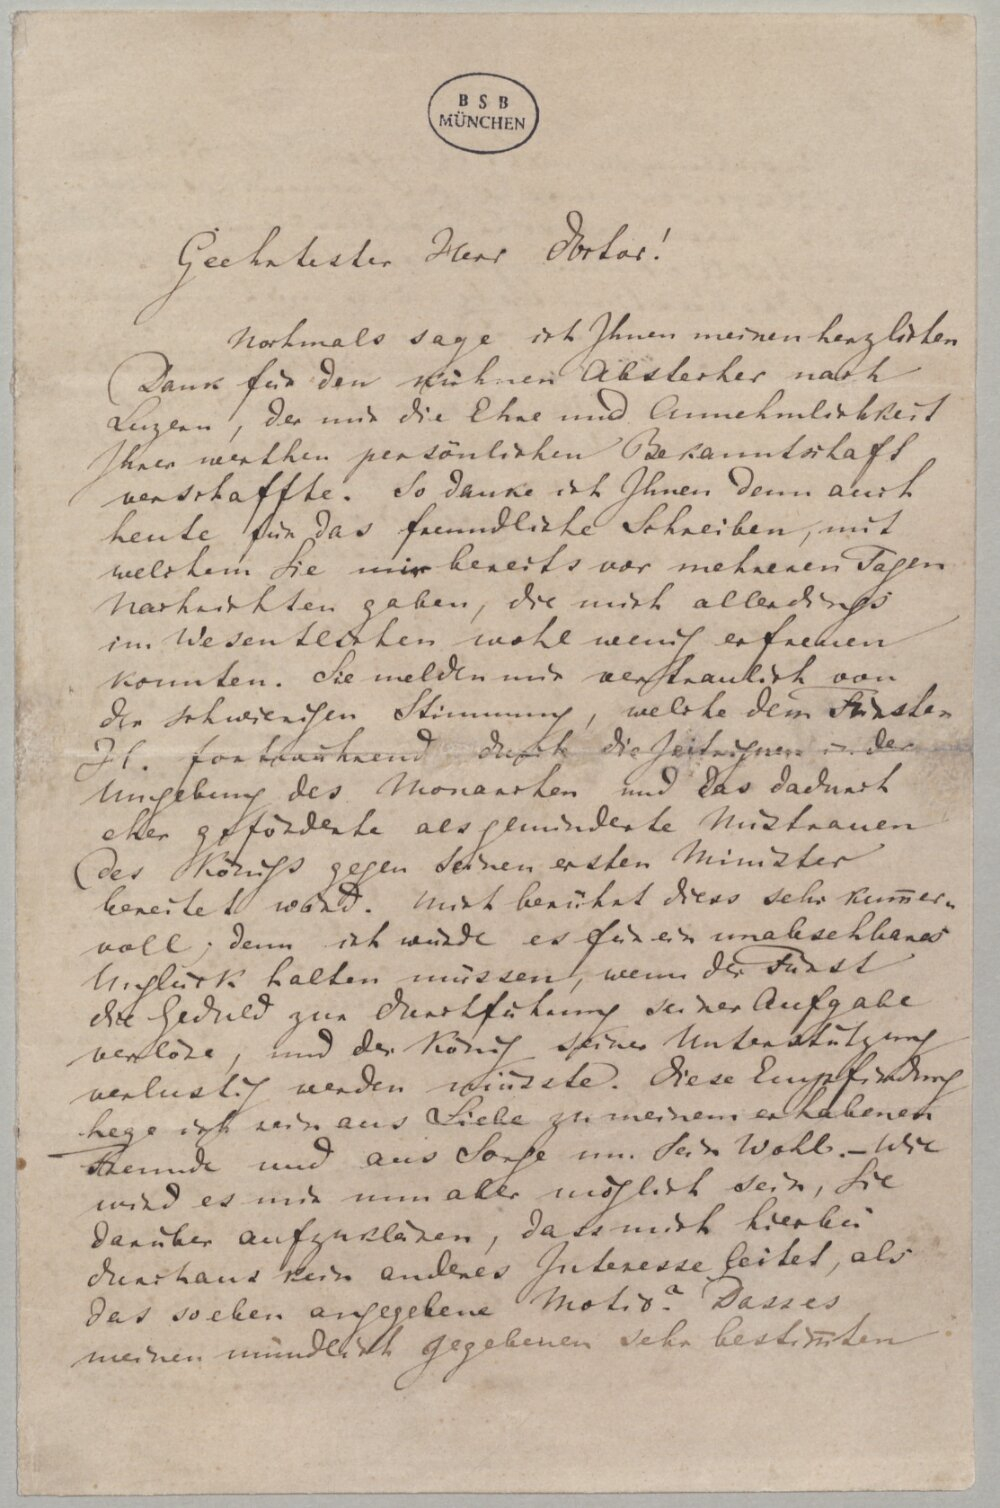 BSB
MÜNCHEN
Geehrtester Herr Doctor!
Nochmals sage ich Ihnen meinen herzlichen
Dank für den kühnen Abstecher nach
Luzern, der mir die Ehre und Annehmlichkeit
Ihrer werthen persönlichen Bekanntschaft
verschaffte. So danke ich Ihnen denn auch
heute für das freundliche Schreiben, mit
welchem Sie mir bereits vor mehreren Tagen
Nachrichten gaben, die mich allerdings
im Wesentlichen wohl wenig erfreuen
konnten. Sie melden mir vertraulich von
der schwierigen Stimmung, welche dem Fürsten
H. fortwährend durch die in der
Umgebung des Monarchen und das dadurch
eher geförderte als geminderte Mistrauen
des Königs gegen seinen ersten Minister
bereitet wird. Mich berührt diess sehr kum̄er-
voll; denn ich würde es für ein unabsehbares
Unglück halten müssen, wenn der Fürst
die Geduld zur Durchführung seiner Aufgabe
verlöre, und der König seiner Unterstützung
verlustig werden müsste. Diese Empfindung
hege ich rein aus Liebe zu meinem erhabenen
Freunde und aus Sorge um Sein Wohl. – Wie
wird es mir nun aber möglich sein, Sie
darüber aufzuklären, dass mich hierbei
durchaus kein anderes Interesse leitet, als
das soeben angegebene Motiv? Dass es
meinen mündlich gegebenen sehr bestim̄ten